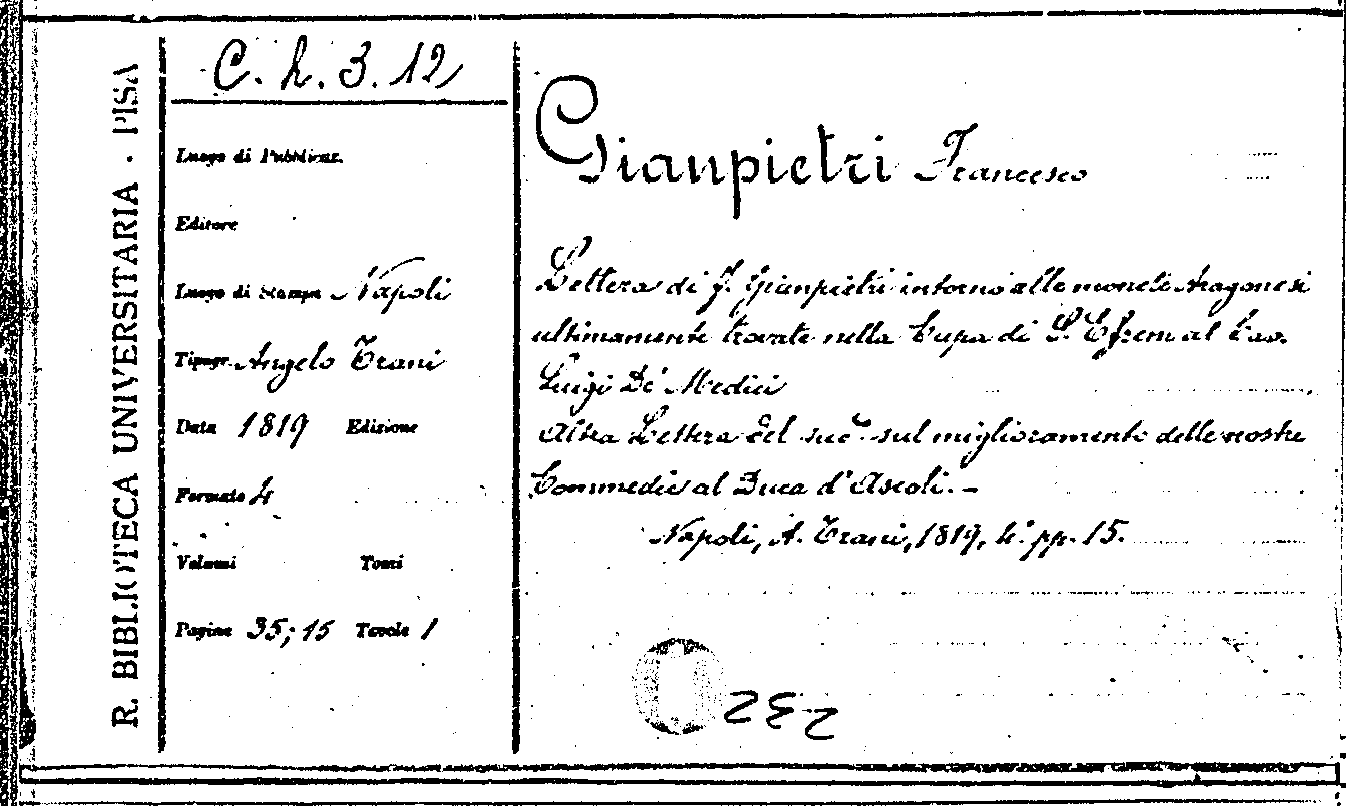 R. BIBLIOTECA UNIVERSITARIA · PISA
C. h. 3. 12
Luogo di Pubblicaz.
Editore
Luogo di Stampa Napoli
Tipogr. Angelo Trani
Data 1819 Edizione
Formato 4
Volumi Tomi
Pagine 35; 15 Tavole 1
Gianpietri Francesco
Lettera di F. Gianpietri intorno alle monete Aragonesi
ultimamente trovate nella Cupa di S. Efrem al Cav.
Luigi De' Medici
Altra Lettera del sud.º sul miglioramento delle nostre
Commedie al Duca d'Ascoli. –
Napoli, A. Trani, 1819, 4.º pp. 15.
232